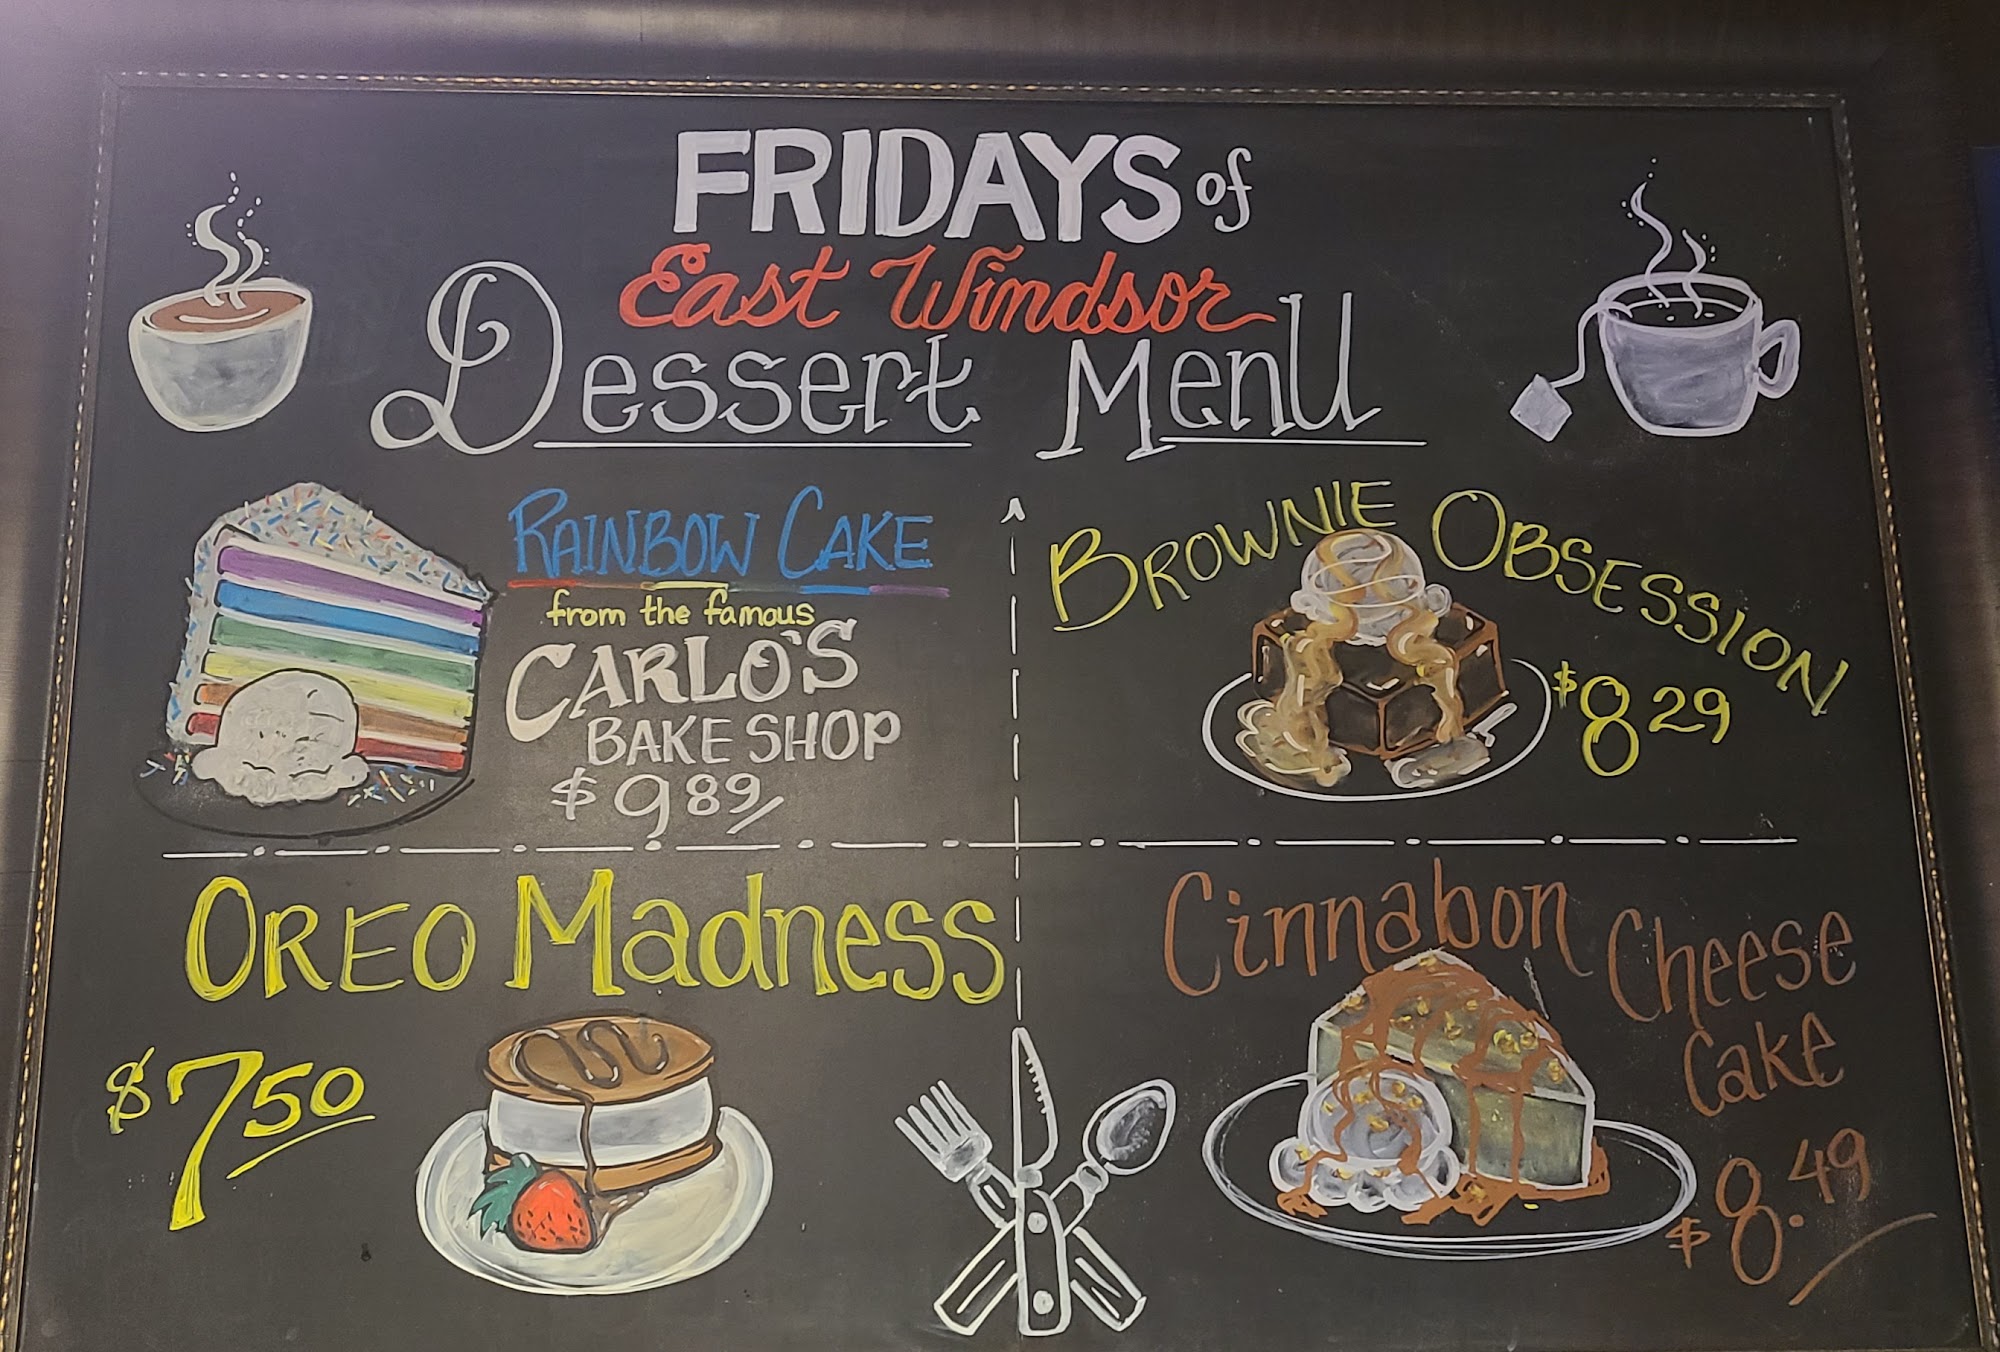 FRIDAYS of
East Windsor
Dessert Menu
RAINBOW CAKE
from the famous
CARLO'S
BAKE SHOP
$9.89
BROWNIE OBSESSION
$8.29
OREO Madness
$7.50
Cinnabon Cheese
Cake
$8.49